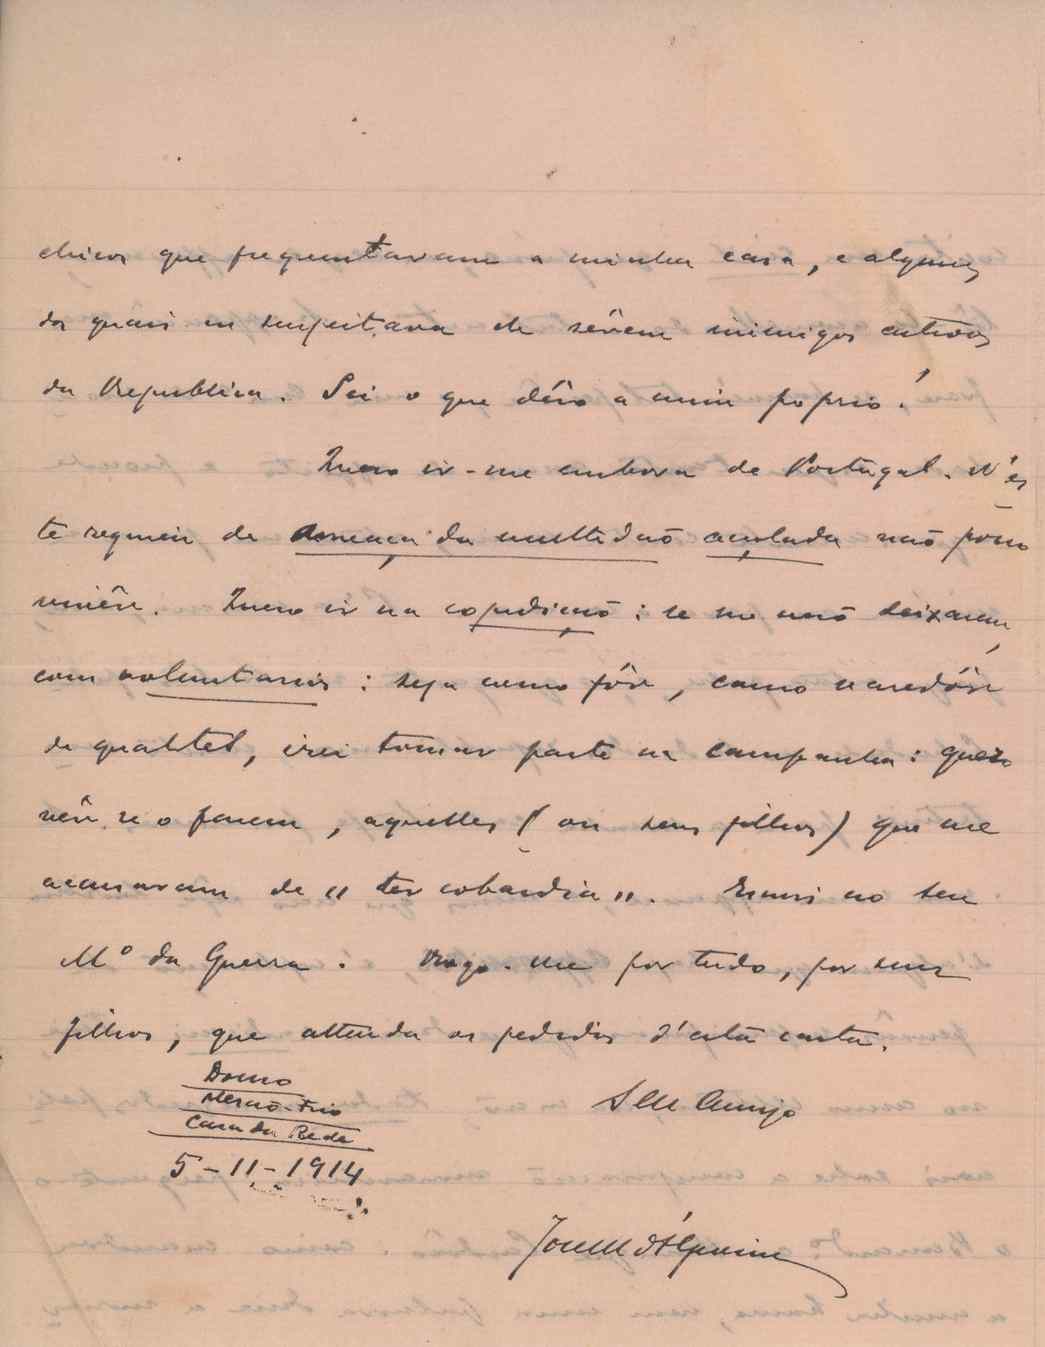 chicos que frequentavam a minha casa, e alguns
dos quais eu suspeitava de sêrem inimigos
da Republica. Sei o que dêvo a mim proprio!
Quero ir-me embora de Portugal. N'es
te regimen de ameaça da multidaõ açulada naõ pósso
vivêr. Quero ir na expediçaõ: se me naõ deixarem,
com voluntarios: seja como fôr, como
de qualité, irei tomar parte na campanha: quero
vêr se o fazem, aquelles (ou seus filhos) que me
accusavam de "ter cobardia". Escrevi ao seu
Mº da Guerra. Rogo-me por tudo, por seus
filhos, que attenda os pedidos d'esta carta.
Douro
Mesaõ-Frio
Casa da Rede
5-11-1914
Seu Amigo
José M d'Alpoim